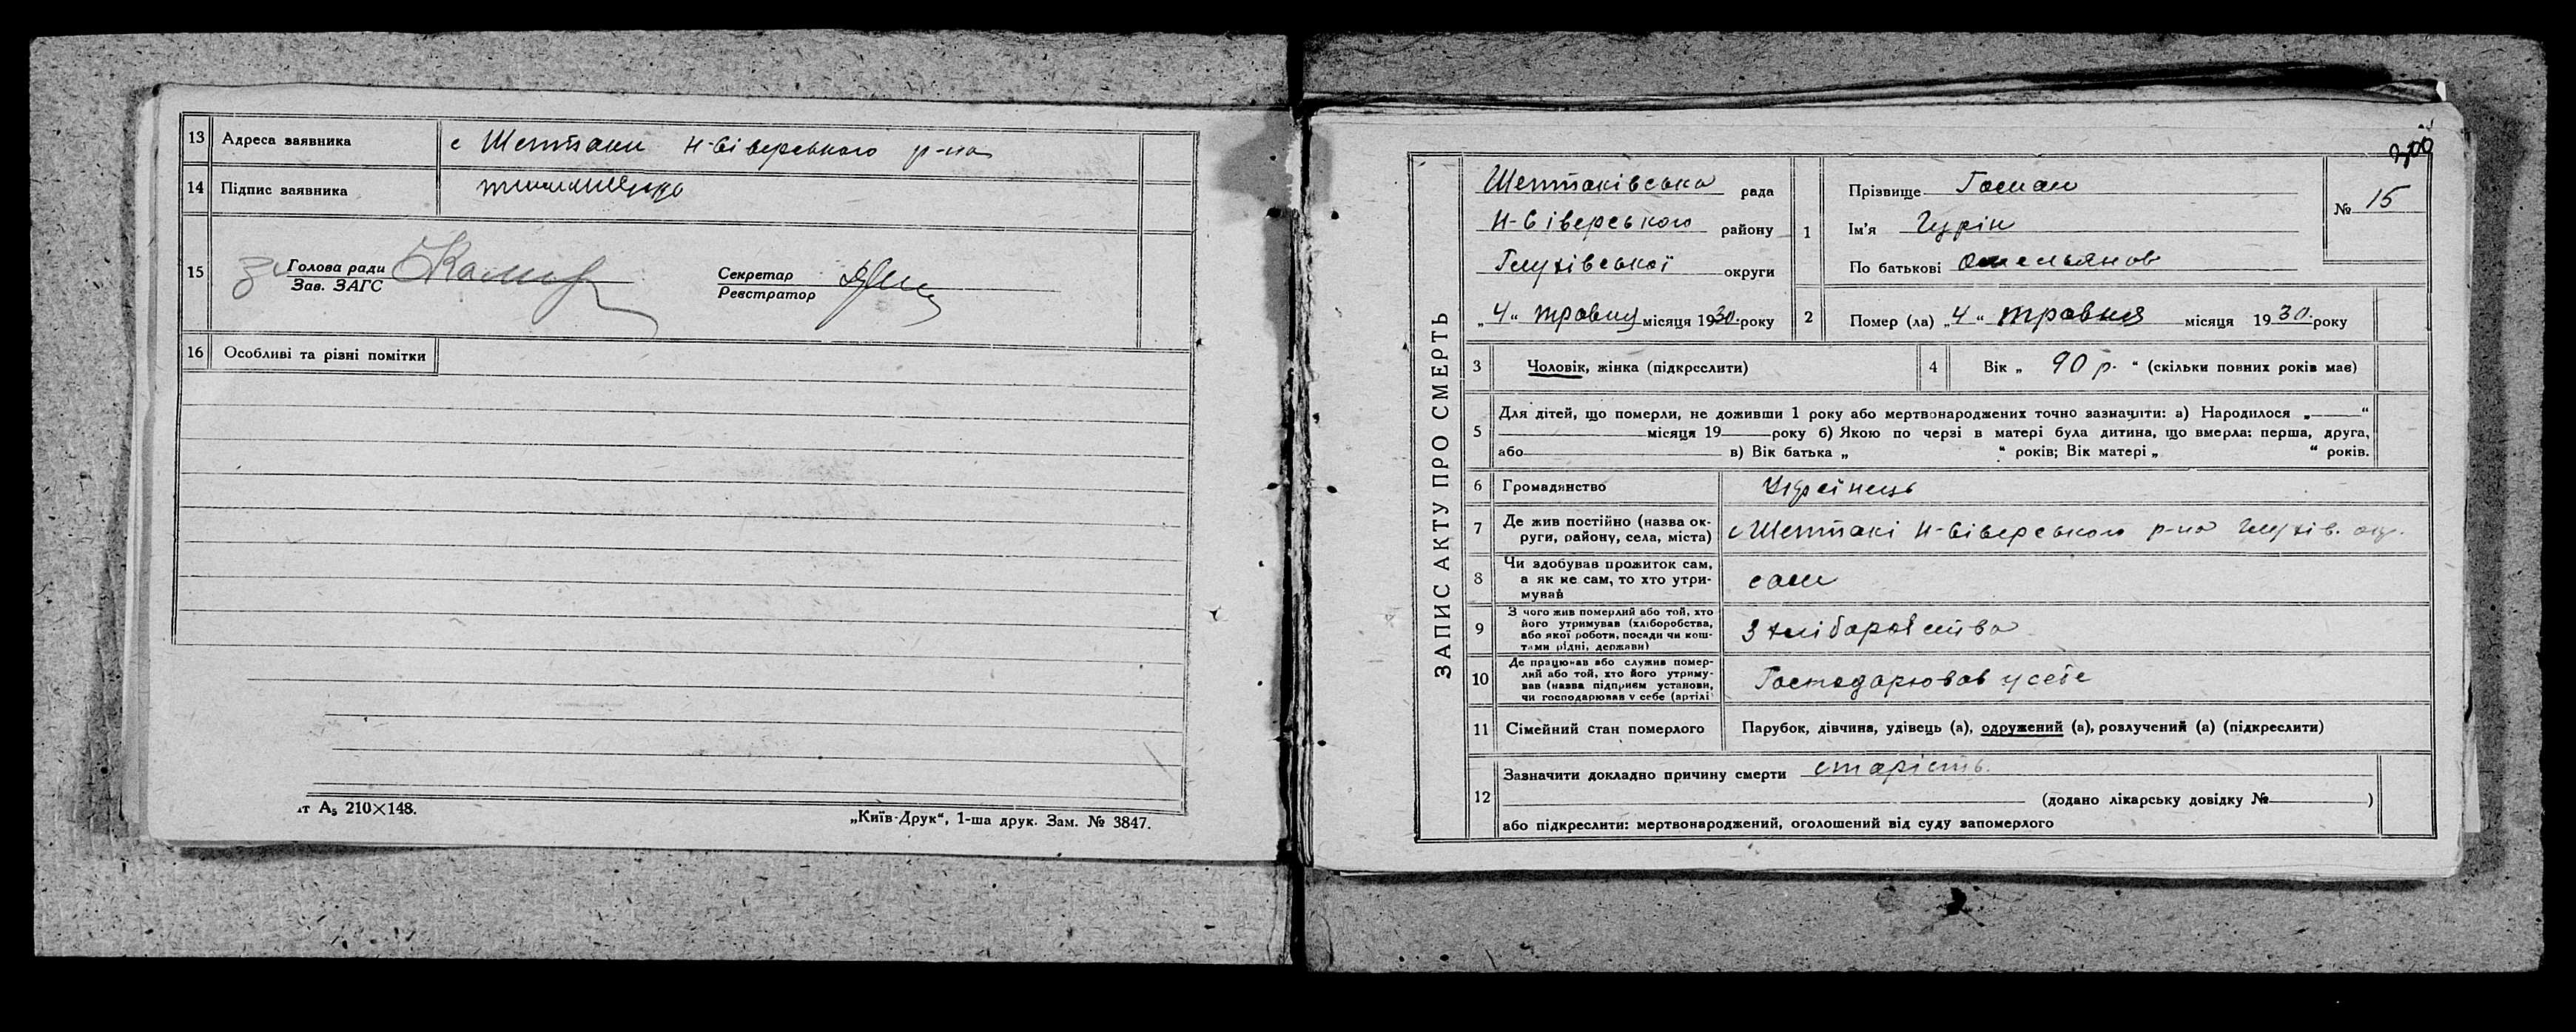 13 Адреса заявника с Шептаки Н-Сіверського р-на
14 Підпис заявника
15 Голова ради
Зав. ЗАГС
Секретар
Реєстратор
16 Особливі та різні помітки
ат А₅ 210×148.
„Київ-Друк“, 1-ша друк. Зам. № 3847.
300
ЗАПИС АКТУ ПРО СМЕРТЬ
Шептаківська рада
Н-Сіверського району
Глухівської округи
„4“ травня місяця 1930 року
1 Прізвище
Ім'я Гурін
По батькові Омельянов
№ 15
2 Помер (ла) „4“ травня місяця 1930. року
3 Чоловік, жінка (підкреслити)
4 Вік „ 90 р. “ (скільки повних років має)
5 Для дітей, що померли, не доживши 1 року або мертвонароджених точно зазначити: а) Народилося „ “
місяця 19 року б) Якою по черзі в матері була дитина, що вмерла: перша, друга,
або в) Вік батька „ “ років; Вік матері „ “ років.
6 Громадянство Українець
7 Де жив постійно (назва ок-
руги, району, села, міста) с Шептакі Н-Сіверського р-на Глухів. окр.
8 Чи здобував прожиток сам,
а як не сам, то хто утри-
мував сам
9 З чого жив померлий або той, хто
його утримував (хліборобства,
або якої роботи, посади чи кош-
тами рідні, держави) З хліборобства
10 Де працював або служив помер-
лий або той, хто його утриму-
вав (назва підприєм установи,
чи господарював у себе (артілі Господарював у себе
11 Сімейний стан померлого Парубок, дівчина, удівець (а), одружений (а), розлучений (а) (підкреслити)
12 Зазначити докладно причину смерти старість.
(додано лікарську довідку № )
або підкреслити: мертвонароджений, оголошений від суду запомерлого